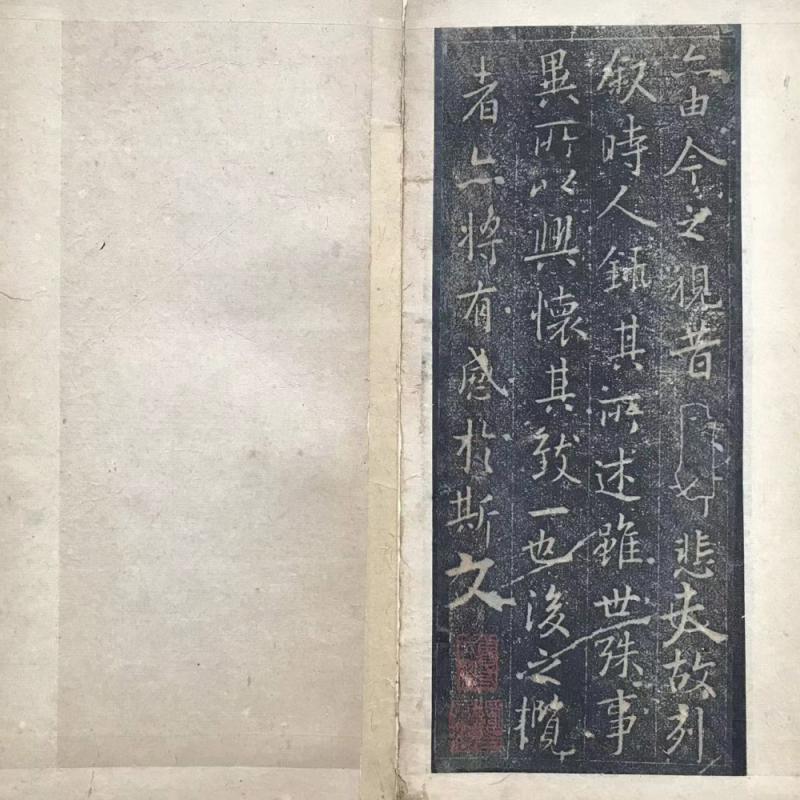 亦由今之視昔悲夫故列
叙時人錄其所述雖世殊事
異所以興懷其致一也後之攬
者亦將有感扵斯文